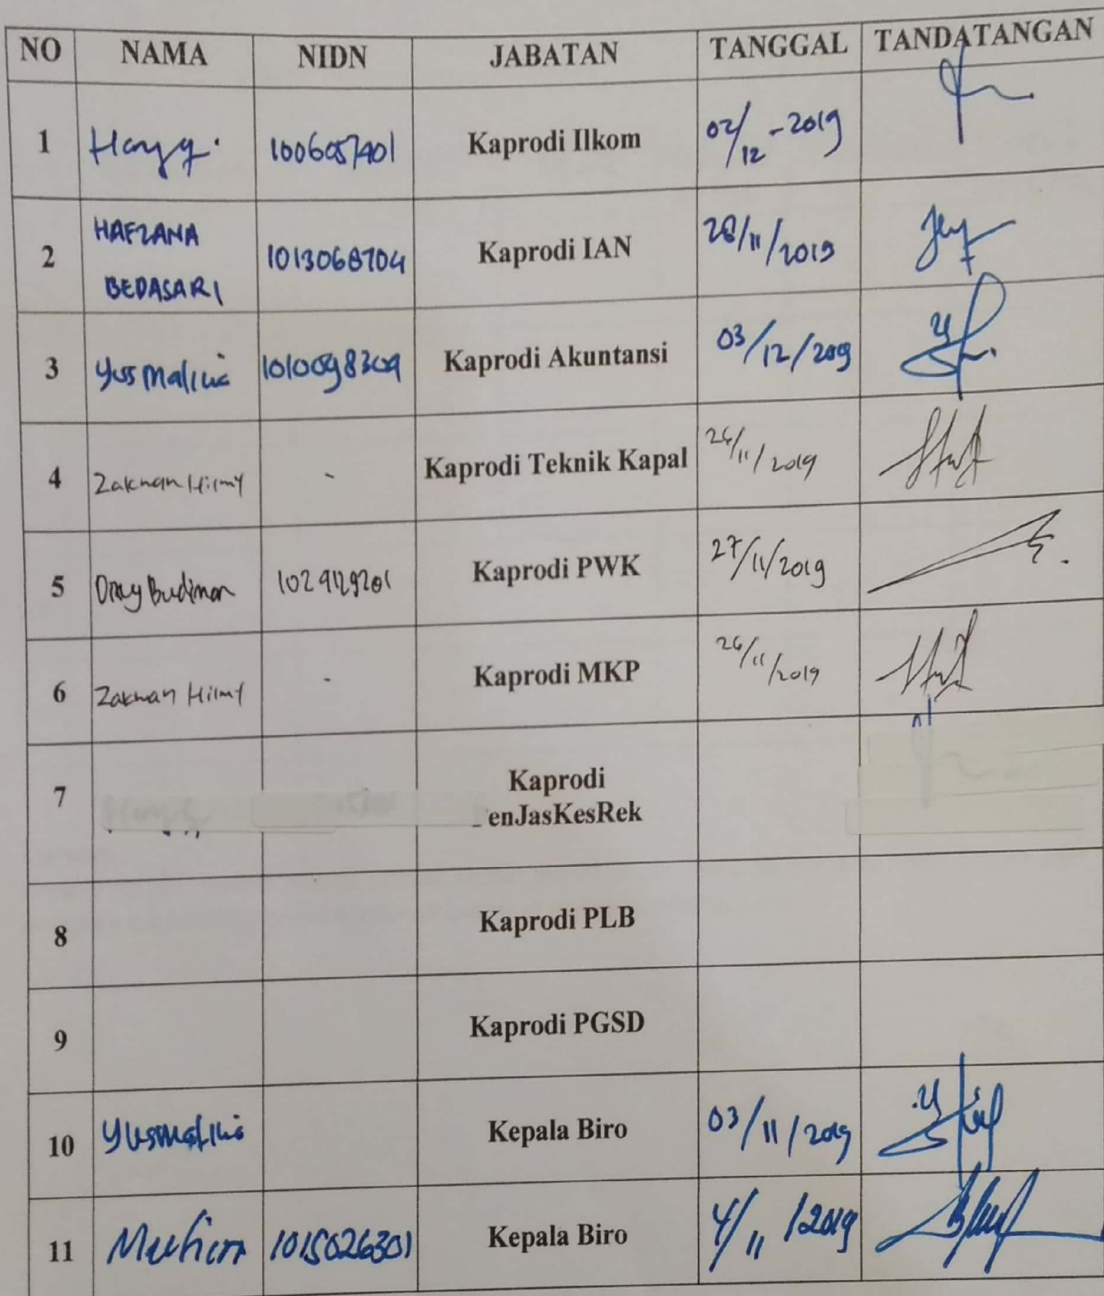 NO NAMA NIDN JABATAN TANGGAL TANDATANGAN
1 1006057401 Kaprodi Ilkom 02/12-2019
2 HAFZANA BEDASARI 1013068704 Kaprodi IAN 28/11/2019
3 Yusmalina 1010098309 Kaprodi Akuntansi 03/12/2019
4 Zakwan Hilmy - Kaprodi Teknik Kapal 26/11/2019
5 Budiman Kaprodi PWK 27/11/2019
6 Zakwan Hilmy - Kaprodi MKP 26/11/2019
7 Kaprodi
enJasKesRek
8 Kaprodi PLB
9 Kaprodi PGSD
10 Yusmalina Kepala Biro 03/11/2019
11 1015026301 Kepala Biro 4/11/2019